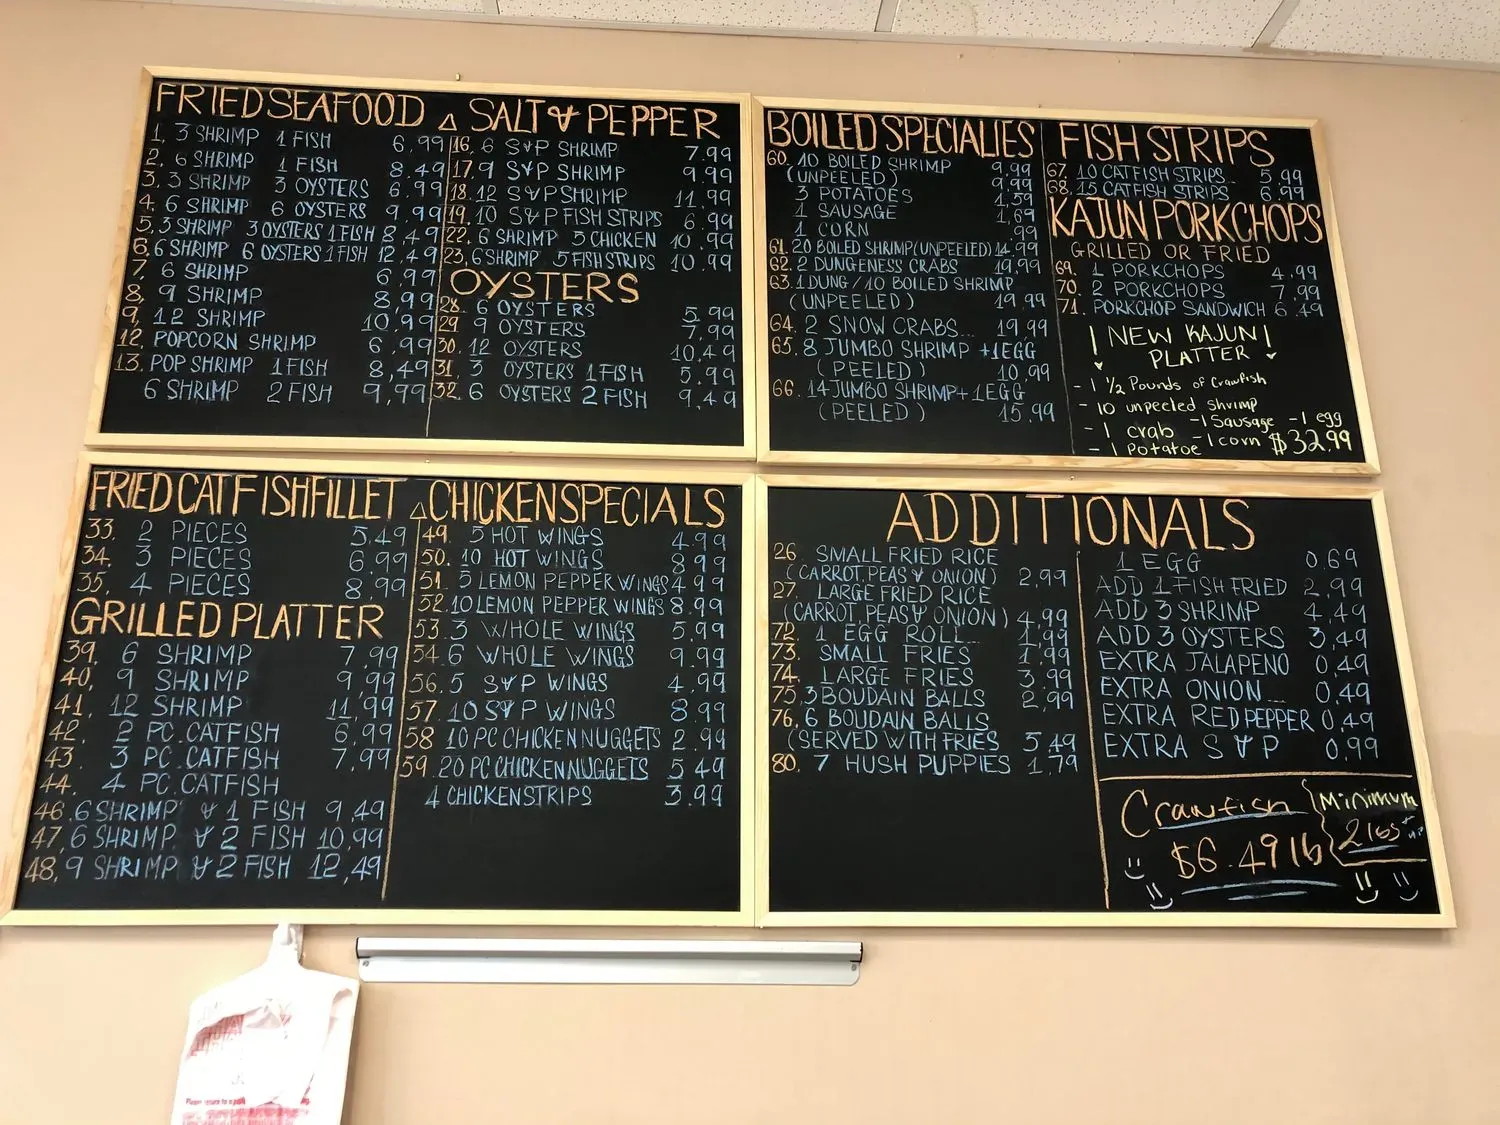 FRIED SEAFOOD
1, 3 SHRIMP 1 FISH 6.99
2, 6 SHRIMP 1 FISH 8.49
3, 3 SHRIMP 3 OYSTERS 6.99
4, 6 SHRIMP 6 OYSTERS 9.99
5, 3 SHRIMP 3 OYSTERS 1 FISH 8.49
6, 6 SHRIMP 6 OYSTERS 1 FISH 12.49
7, 6 SHRIMP 6.99
8, 9 SHRIMP 8.99
9, 12 SHRIMP 10.99
12. POPCORN SHRIMP 6.99
13. POP SHRIMP 1 FISH 8.49
6 SHRIMP 2 FISH 9.99
SALT & PEPPER
16. 6 S&P SHRIMP 7.99
17. 9 S&P SHRIMP 9.99
18. 12 S&P SHRIMP 11.99
19. 10 S&P FISH STRIPS 6.99
22. 6 SHRIMP 5 CHICKEN 10.99
23. 6 SHRIMP 5 FISH STRIPS 10.99
OYSTERS
28. 6 OYSTERS 5.99
29 9 OYSTERS 7.99
30. 12 OYSTERS 10.49
31. 3 OYSTERS 1 FISH 5.99
32. 6 OYSTERS 2 FISH 9.49
BOILED SPECIALIES
60. 10 BOILED SHRIMP 9.99
(UNPEELED) 9.99
3 POTATOES 1.59
1 SAUSAGE 1.69
1 CORN .99
61. 20 BOILED SHRIMP (UNPEELED) 14.99
62. 2 DUNGENESS CRABS 19.99
63. 1 DUNG / 10 BOILED SHRIMP
(UNPEELED) 19.99
64. 2 SNOW CRABS... 19.99
65. 8 JUMBO SHRIMP +1 EGG
(PEELED) 10.99
66. 14 JUMBO SHRIMP + 1 EGG
(PEELED) 15.99
FISH STRIPS
67. 10 CATFISH STRIPS.. 5.99
68. 15 CATFISH STRIPS 6.99
KAJUN PORKCHOPS
GRILLED OR FRIED
69. 1 PORKCHOPS 4.99
70. 2 PORKCHOPS 7.99
71. PORKCHOP SANDWICH 6.49
NEW KAJUN
PLATTER
- 1 1/2 Pounds of Crawfish
- 10 unpeeled shrimp
- 1 crab - 1 Sausage - 1 egg
- 1 Potatoe - 1 corn $32.99
FRIED CATFISH FILLET
33. 2 PIECES 5.49
34. 3 PIECES 6.99
35. 4 PIECES 8.99
GRILLED PLATTER
39. 6 SHRIMP 7.99
40. 9 SHRIMP 9.99
41. 12 SHRIMP 11.99
42. 2 PC. CATFISH 6.99
43. 3 PC. CATFISH 7.99
44. 4 PC. CATFISH
46. 6 SHRIMP & 1 FISH 9.49
47. 6 SHRIMP & 2 FISH 10.99
48. 9 SHRIMP & 2 FISH 12.49
CHICKEN SPECIALS
49. 5 HOT WINGS 4.99
50. 10 HOT WINGS 8.99
51. 5 LEMON PEPPER WINGS 4.99
52. 10 LEMON PEPPER WINGS 8.99
53. 3 WHOLE WINGS 5.99
54. 6 WHOLE WINGS 9.99
56. 5 S&P WINGS 4.99
57. 10 S&P WINGS 8.99
58 10 PC CHICKEN NUGGETS 2.99
59. 20 PC CHICKEN NUGGETS 5.49
4 CHICKEN STRIPS 3.99
ADDITIONALS
26. SMALL FRIED RICE
(CARROT, PEAS & ONION) 2.99
27. LARGE FRIED RICE
(CARROT, PEAS & ONION) 4.99
72. 1 EGG ROLL... 1.99
73. SMALL FRIES 1.99
74. LARGE FRIES 3.99
75. 3 BOUDAIN BALLS 2.99
76. 6 BOUDAIN BALLS
(SERVED WITH FRIES 5.49
80. 7 HUSH PUPPIES 1.79
1 EGG 0.69
ADD 1 FISH FRIED 2.99
ADD 3 SHRIMP 4.49
ADD 3 OYSTERS 3.49
EXTRA JALAPENO 0.49
EXTRA ONION... 0.49
EXTRA RED PEPPER 0.49
EXTRA S & P 0.99
Crawfish
$6.49 lb
Minimum
2 lbs